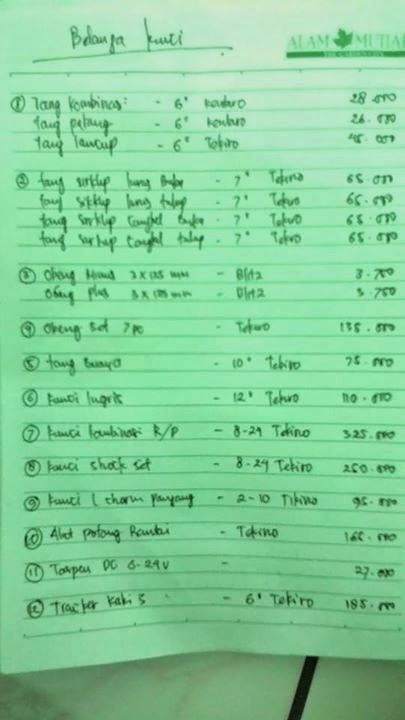 Belanja kunci
ALAM MUTIAR
① Tang kombinasi - 6" Kenburo 28.000
tang potong - 6" Kenburo 26.000
tang lancup - 6" Tekiro 45.000
② tang sirklip lurus buka - 7" Tekiro 65.000
tang sirklip lurus tutup - 7" Tekiro 65.000
tang sirklip bengkok buka - 7" Tekiro 65.000
tang sirklip bengkok tutup - 7" Tekiro 65.000
③ Obeng Minus 3 x 125 mm - Blitz 3.750
obeng plus 3 x 125 mm - Blitz 3.750
④ Obeng Set 7 pc - Tekiro 135.000
⑤ tang buaya - 10" Tekiro 75.000
⑥ Kunci Ingris - 12" Tekiro 110.000
⑦ Kunci kombinasi R/P - 8-24 Tekiro 325.000
⑧ Kunci shock set - 8-24 Tekiro 250.000
⑨ Kunci L panjang - 2-10 Tikiro 95.000
⑩ Alat potong Rantai - Tekiro 165.000
⑪ Taspen DC 6-24V - 27.000
⑫ Tracker Kaki 3 - 6" Tekiro 185.000